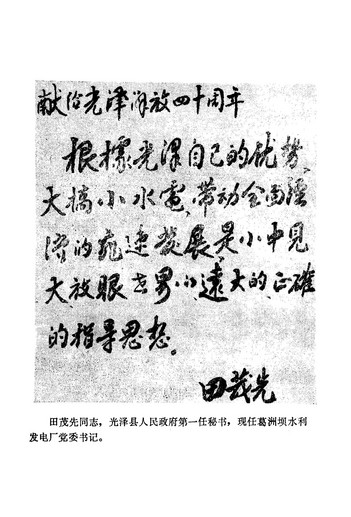 献给光泽解放四十周年
根据光泽自己的优势，
大搞小水电，带动全面经
济的飞速发展，是小中见
大放眼世界小远大的正确
的指导思想。
田茂先
田茂先同志，光泽县人民政府第一任秘书，现任葛洲坝水利
发电厂党委书记。